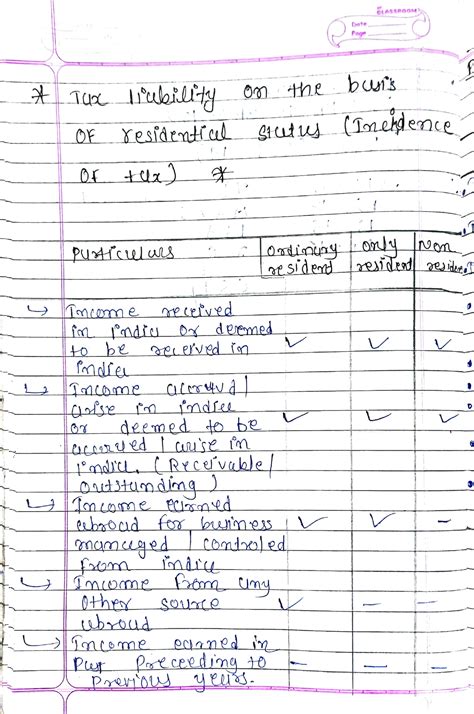 CLASSROOM
Date
Page
* Tax liability on the basis
of residential status (Incidence
of tax) *
Particulars | Ordinary resident | only resident | Non resident
↳ Income received
in india or deemed
to be received in ✓ ✓ ✓
india
↳ Income accrued |
arise in india
or deemed to be ✓ ✓ ✓
accrued | arise in
india. (Receivable |
outstanding)
↳ Income earned
abroad for business ✓ ✓ –
managed | controled
from india
↳ Income from any
other source ✓ – –
abroad
↳ Income earned in
Past Preceeding to – – –
Previous years.